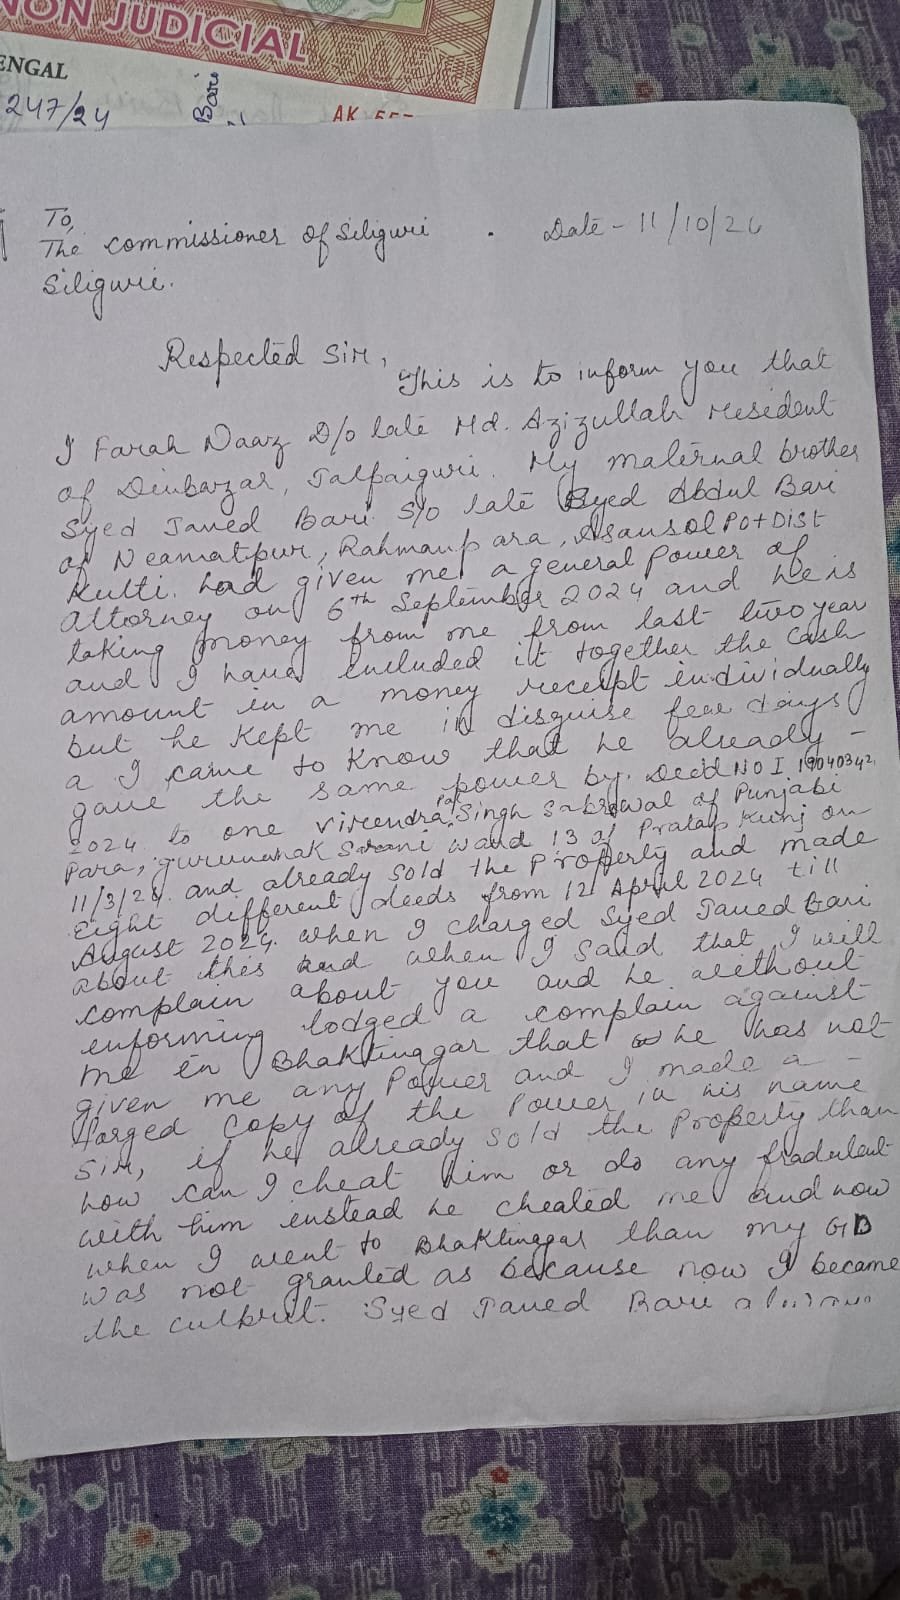 NON JUDICIAL
ENGAL
247/24
Bari
AK 557
To,
The commissioner of Siliguri . Date - 11/10/24
Siliguri.
Respected Sir,
This is to inform you that
I Farah Naaz D/o late Md. Azizullah resident
of Dinbazar, Jalpaiguri. My maternal brother
Syed Javed Bari S/o late Syed Abdul Bari
of Neamatpur, Rahmanpara, Asansol PO+Dist
Kulti. had given me a general Power of
Attorney on 6th September 2024 and he is
taking money from me from last two year
and I have included it together the cash
amount in a money receipt individually
but he kept me in disguise few days
a I came to know that he already -
gave the same power by. Deed No I 19040342
2024 to one Virendra Pal Singh Sabrewal of Punjabi
Para, gurunanak Sarani ward 13 of Pratap Kunj on
11/3/24. and already sold the Property and made
Eight different deeds from 12 April 2024 till
August 2024. when I charged Syed Javed Bari
about this and when I said that I will
complain about you and he without
informing lodged a complain against
me in Bhaktinagar that he has not
given me any Power and I made a -
forged copy of the Power in his name
Sir, if he already sold the Property than
how can I cheat him or do any fradulent
with him instead he cheated me and now
when I went to Bhaktinagar than my GD
was not granted as because now I became
the culprit. Syed Javed Bari